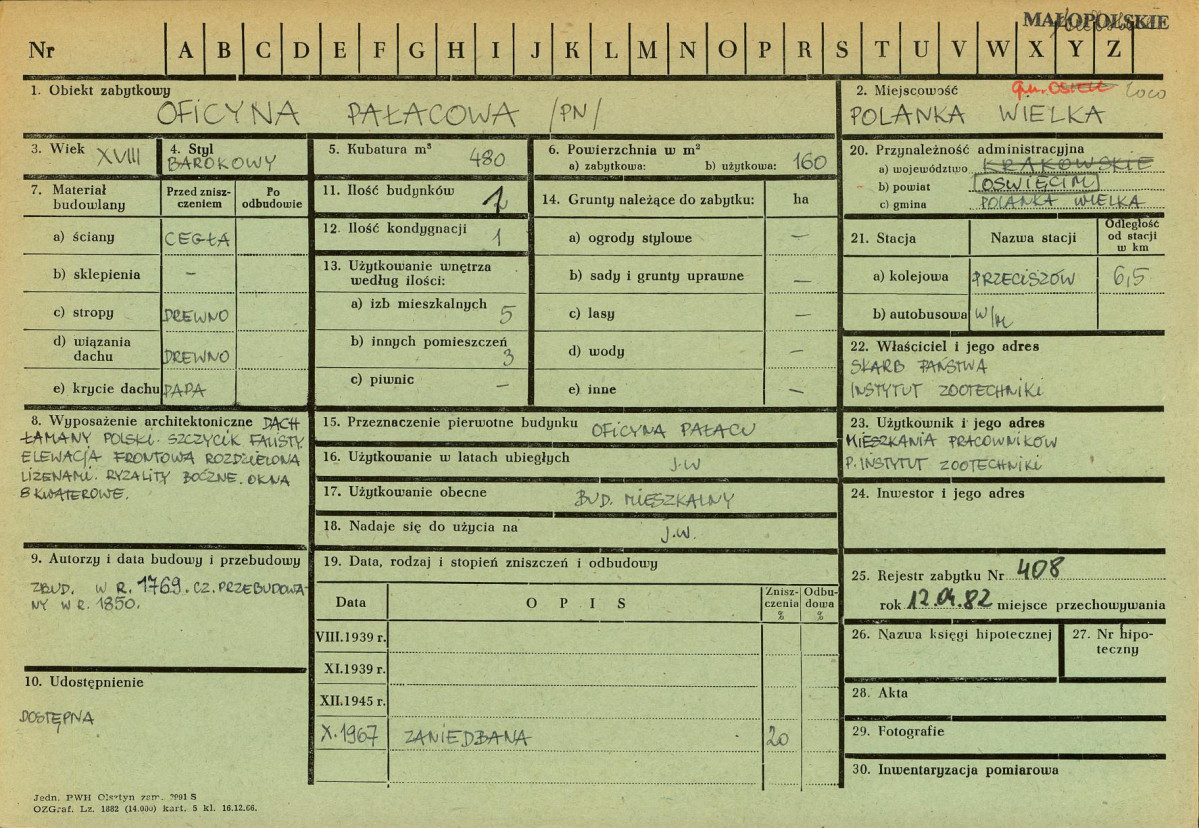 MAŁOPOLSKIE
Nr A B C D E F G H I J K L M N O P R S T U V W X Y Z
1. Obiekt zabytkowy
OFICYNA PAŁACOWA /PN/
2. Miejscowość
POLANKA WIELKA
3. Wiek XVIII
4. Styl
BAROKOWY
5. Kubatura m³
480
6. Powierzchnia w m²
a) zabytkowa: b) użytkowa: 160
20. Przynależność administracyjna
a) województwo KRAKOWSKIE
b) powiat OŚWIĘCIM
c) gmina POLANKA WIELKA
7. Materiał budowlany
Przed znisz-
czeniem
Po
odbudowie
a) ściany CEGŁA
b) sklepienia –
c) stropy DREWNO
d) wiązania
dachu DREWNO
e) krycie dachu PAPA
11. Ilość budynków 1
12. Ilość kondygnacji 1
13. Użytkowanie wnętrza
według ilości:
a) izb mieszkalnych 5
b) innych pomieszczeń
3
c) piwnic –
14. Grunty należące do zabytku: ha
a) ogrody stylowe –
b) sady i grunty uprawne –
c) lasy –
d) wody –
e) inne –
21. Stacja Nazwa stacji
Odległość
od stacji
w km
a) kolejowa PRZECISZÓW 6,5
b) autobusowa W/M
22. Właściciel i jego adres
SKARB PAŃSTWA
INSTYTUT ZOOTECHNIKI
8. Wyposażenie architektoniczne DACH
ŁAMANY POLSKI. SZCZYCIK FALISTY
ELEWACJA FRONTOWA ROZDZIELONA
LIZENAMI. RYZALITY BOCZNE. OKNA
8 KWATEROWE.
15. Przeznaczenie pierwotne budynku OFICYNA PAŁACU
16. Użytkowanie w latach ubiegłych J.W
17. Użytkowanie obecne BUD. MIESZKALNY
18. Nadaje się do użycia na J.W.
23. Użytkownik i jego adres
MIESZKANIA PRACOWNIKÓW
P. INSTYTUT ZOOTECHNIKI
24. Inwestor i jego adres
9. Autorzy i data budowy i przebudowy
ZBUD. W R. 1769. CZ. PRZEBUDOWA-
NY W R. 1850.
10. Udostępnienie
DOSTĘPNA
19. Data, rodzaj i stopień zniszczeń i odbudowy
Data OPIS
Znisz-
czenia
%
Odbu-
dowa
%
VIII.1939 r.
XI.1939 r.
XII.1945 r.
X.1967 ZANIEDBANA 20
25. Rejestr zabytku Nr 408
rok 12.04.82 miejsce przechowywania
26. Nazwa księgi hipotecznej
27. Nr hipo-
teczny
28. Akta
29. Fotografie
30. Inwentaryzacja pomiarowa
Jedn. PWH Olsztyn zam. 2991 S
OZGraf. Lz. 1882 (14.000) kart. 5 kl. 16.12.66.